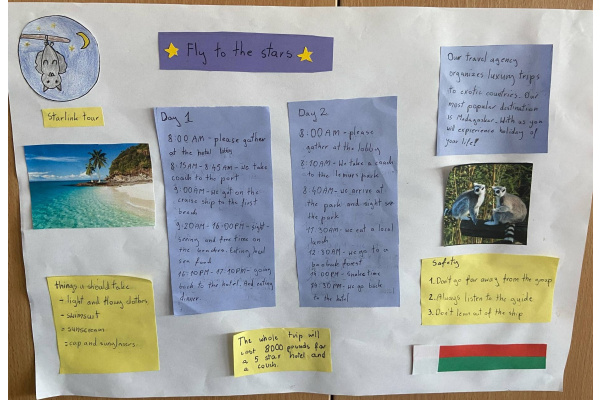 Fly to the stars
Starlink tour
Our travel agency
organizes luxury trips
to exotic countries. Our
most popular destination
is Madagaskar. With us you
wil experience holiday of
your life!
Day 1
8:00 AM - please gather
at the hotel lobby
8:15AM - 8:45AM - we take
coach to the port
9:00AM - we get on the
cruise ship to the first
beach
9:20AM - 16:00PM - sight-
seeing and free time on
the beaches. Eating local
sea food
16:10PM - 17:40PM - going
back to the hotel. And eating
dinner.
Day 2
8:00 AM - please
gather at the lobby
8:10AM - We take a coach
to the lemurs park
8:40AM - we arrive at
the park and sight see
the park
11:30AM - we eat a local
lunch
12:30AM - we go to a
baobab forest
14:00PM -
16:30PM - we go back
to the hotel
things u should take
- light and flowy clothes
- swimsuit
- sunscream
- cap and sunglasses.
The whole trip will
cost 8000 pounds for
a 5 star hotel and
a coach.
Safety
1. Don't go far away from the group
2. Always listen to the guide
3. Don't lean out of the ship